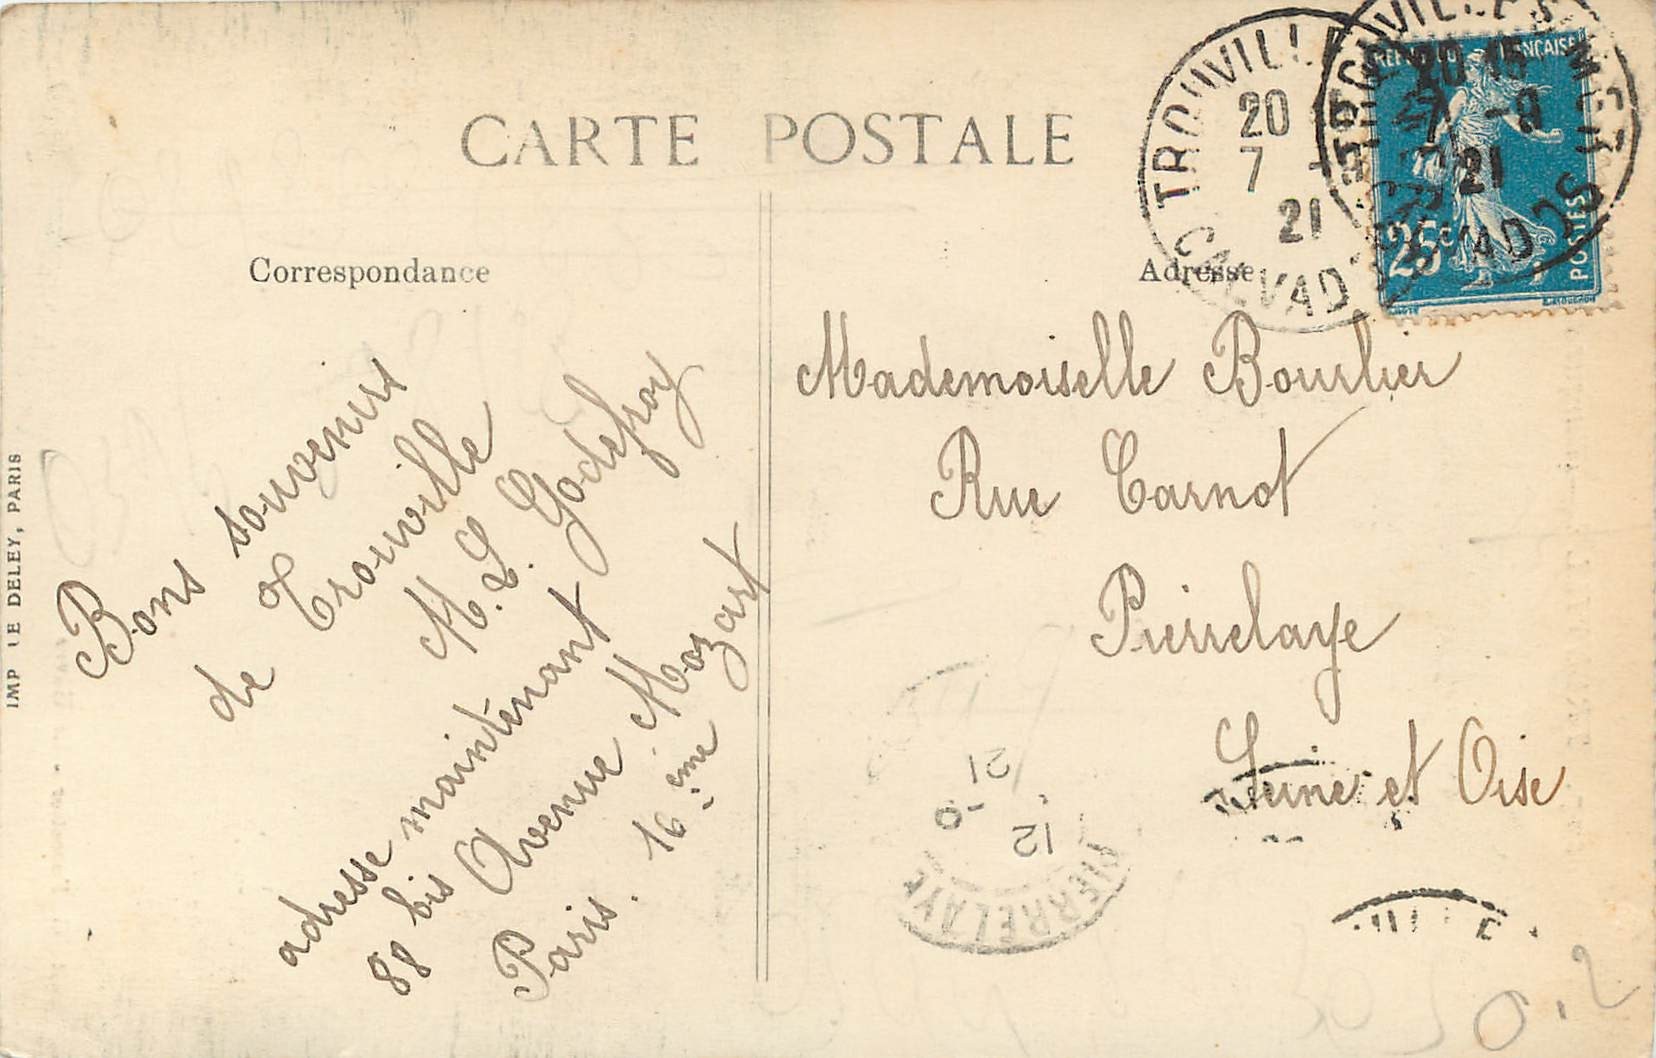 CARTE POSTALE
Correspondance
Bons souvenirs
de Trouville
M. L. Godefroy
adresse maintenant
88 bis Avenue Mozart
Paris. 16ème
IMP LE DELEY, PARIS
Adresse
Mademoiselle Bourlier
Rue Carnot
Pierrelaye
Seine et Oise
TROUVILLE
20
7
21
CALVADOS
TROUVILLE S MER
20 15
7 -9
21
CALVADOS
REPUBLIQUE FRANÇAISE
25c
POSTES
PIERRELAYE
12
21